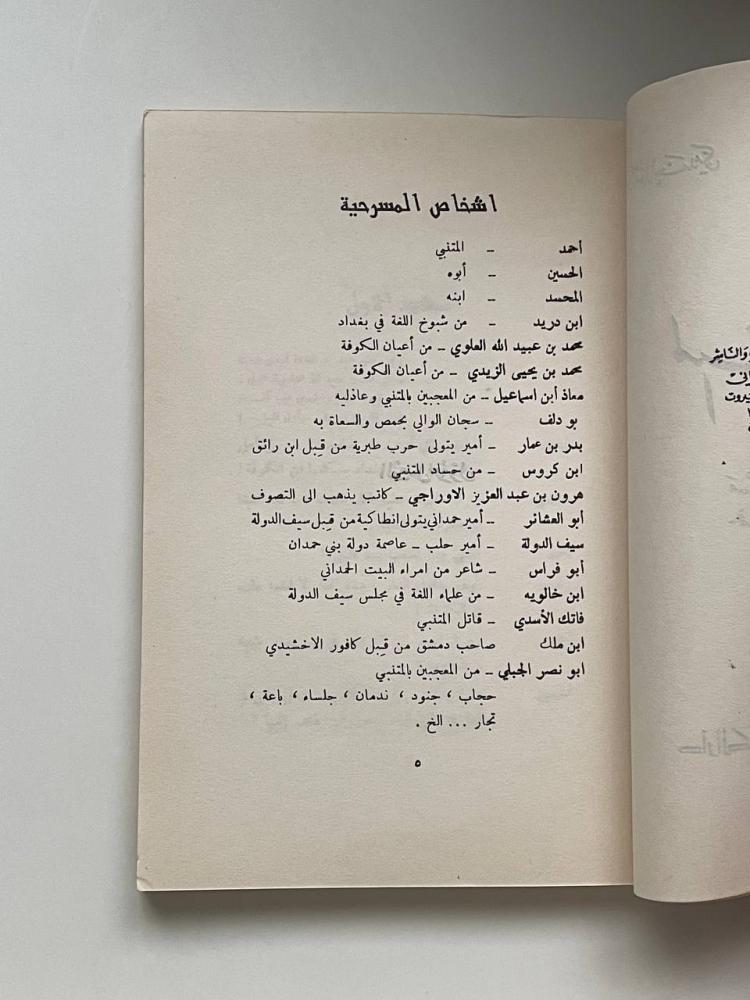 اشخاص المسرحية
أحمد – المتنبي
الحسين – أبوه
المحسد – ابنه
ابن دريد – من شيوخ اللغة في بغداد
محمد بن عبيد الله العلوي – من أعيان الكوفة
محمد بن يحيى الزيدي – من أعيان الكوفة
معاذ أبن اسماعيل – من المعجبين بالمتنبي وعاذليه
بو دلف – سجان الوالي بحمص والسعاة به
بدر بن عمار – أمير يتولى حرب طبرية من قِبل ابن رائق
ابن كروس – من حساد المتنبي
هرون بن عبد العزيز الاوراجي – كاتب يذهب الى التصوف
أبو العشائر – أمير حمداني يتولى انطاكية من قِبل سيف الدولة
سيف الدولة – أمير حلب – عاصمة دولة بني حمدان
أبو فراس – شاعر من امراء البيت الحمداني
ابن خالويه – من علماء اللغة في مجلس سيف الدولة
فاتك الأسدي – قاتل المتنبي
ابن ملك – صاحب دمشق من قِبل كافور الاخشيدي
ابو نصر الجبلي – من المعجبين بالمتنبي
حجاب ، جنود ، ندمان ، جلساء ، باعة ،
تجار ... الخ .
٥
والناشر
بيروت